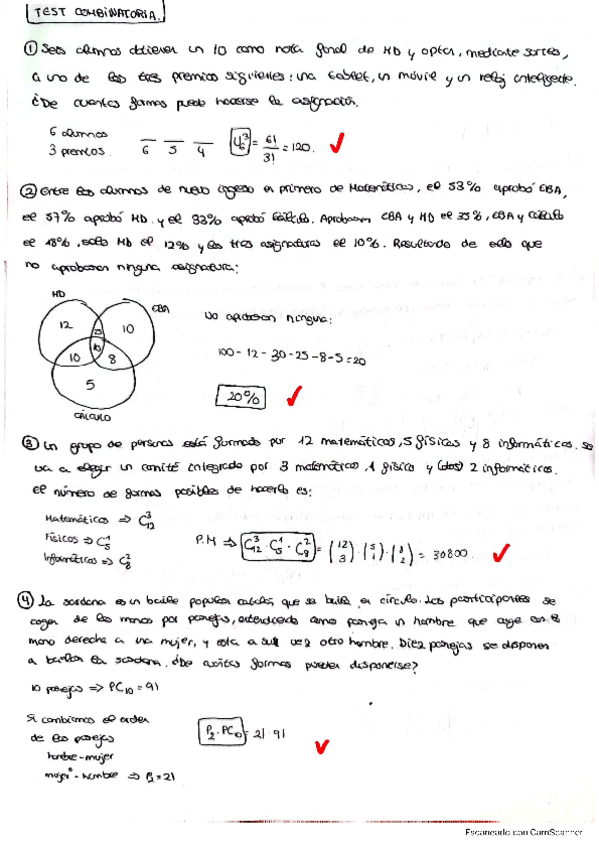 TEST COMBINATORIA.
① Seis alumnos obtienen un 10 como nota final de MD y optan, mediante sorteo,
a uno de los tres premios siguientes: una tablet, un móvil y un reloj inteligente.
¿De cuántas formas puede hacerse la asignación.
6 alumnos
3 premios
6 5 4
V₆³ = 6!/3! = 120.
② Entre los alumnos de nuevo ingreso en primero de Matemáticas, el 53% aprobó CBA,
el 57% aprobó MD y el 33% aprobó Cálculo. Aprobaron CBA y MD el 35%, CBA y Cálculo
el 18%, solo MD el 12% y las tres asignaturas el 10%. Resultado de ello que
no aprobaron ninguna asignatura:
MD
CBA
12
10
10
10
8
5
CÁLCULO
No aprobaron ninguna:
100 - 12 - 30 - 25 - 8 - 5 = 20
20%
③ Un grupo de personas está formado por 12 matemáticos, 5 físicas y 8 informáticos. Se
va a elegir un comité integrado por 3 matemáticos, 1 físico y (dos) 2 informáticos.
El número de formas posibles de hacerlo es:
Matemáticos ⇒ C₁₂³
Físicos ⇒ C₅¹
Informáticos ⇒ C₈²
P.M ⇒ C₁₂³ · C₅¹ · C₈² = (12 3) · (5 1) · (8 2) = 30800.
④ La sardana es un baile popular catalán, que se baila en círculo. Los participantes se
cogen de las manos por parejas, entendiendo como pareja un hombre que coge con su
mano derecha a una mujer, y esta a su vez otro hombre. Diez parejas se disponen
a bailar la sardana. ¿De cuántas formas pueden disponerse?
10 parejas ⇒ PC₁₀ = 9!
Si cambiamos el orden
de las parejas
hombre - mujer
mujer - hombre ⇒ P₂ = 2!
P₂ · PC₁₀ = 2! · 9!
Escaneado con CamScanner